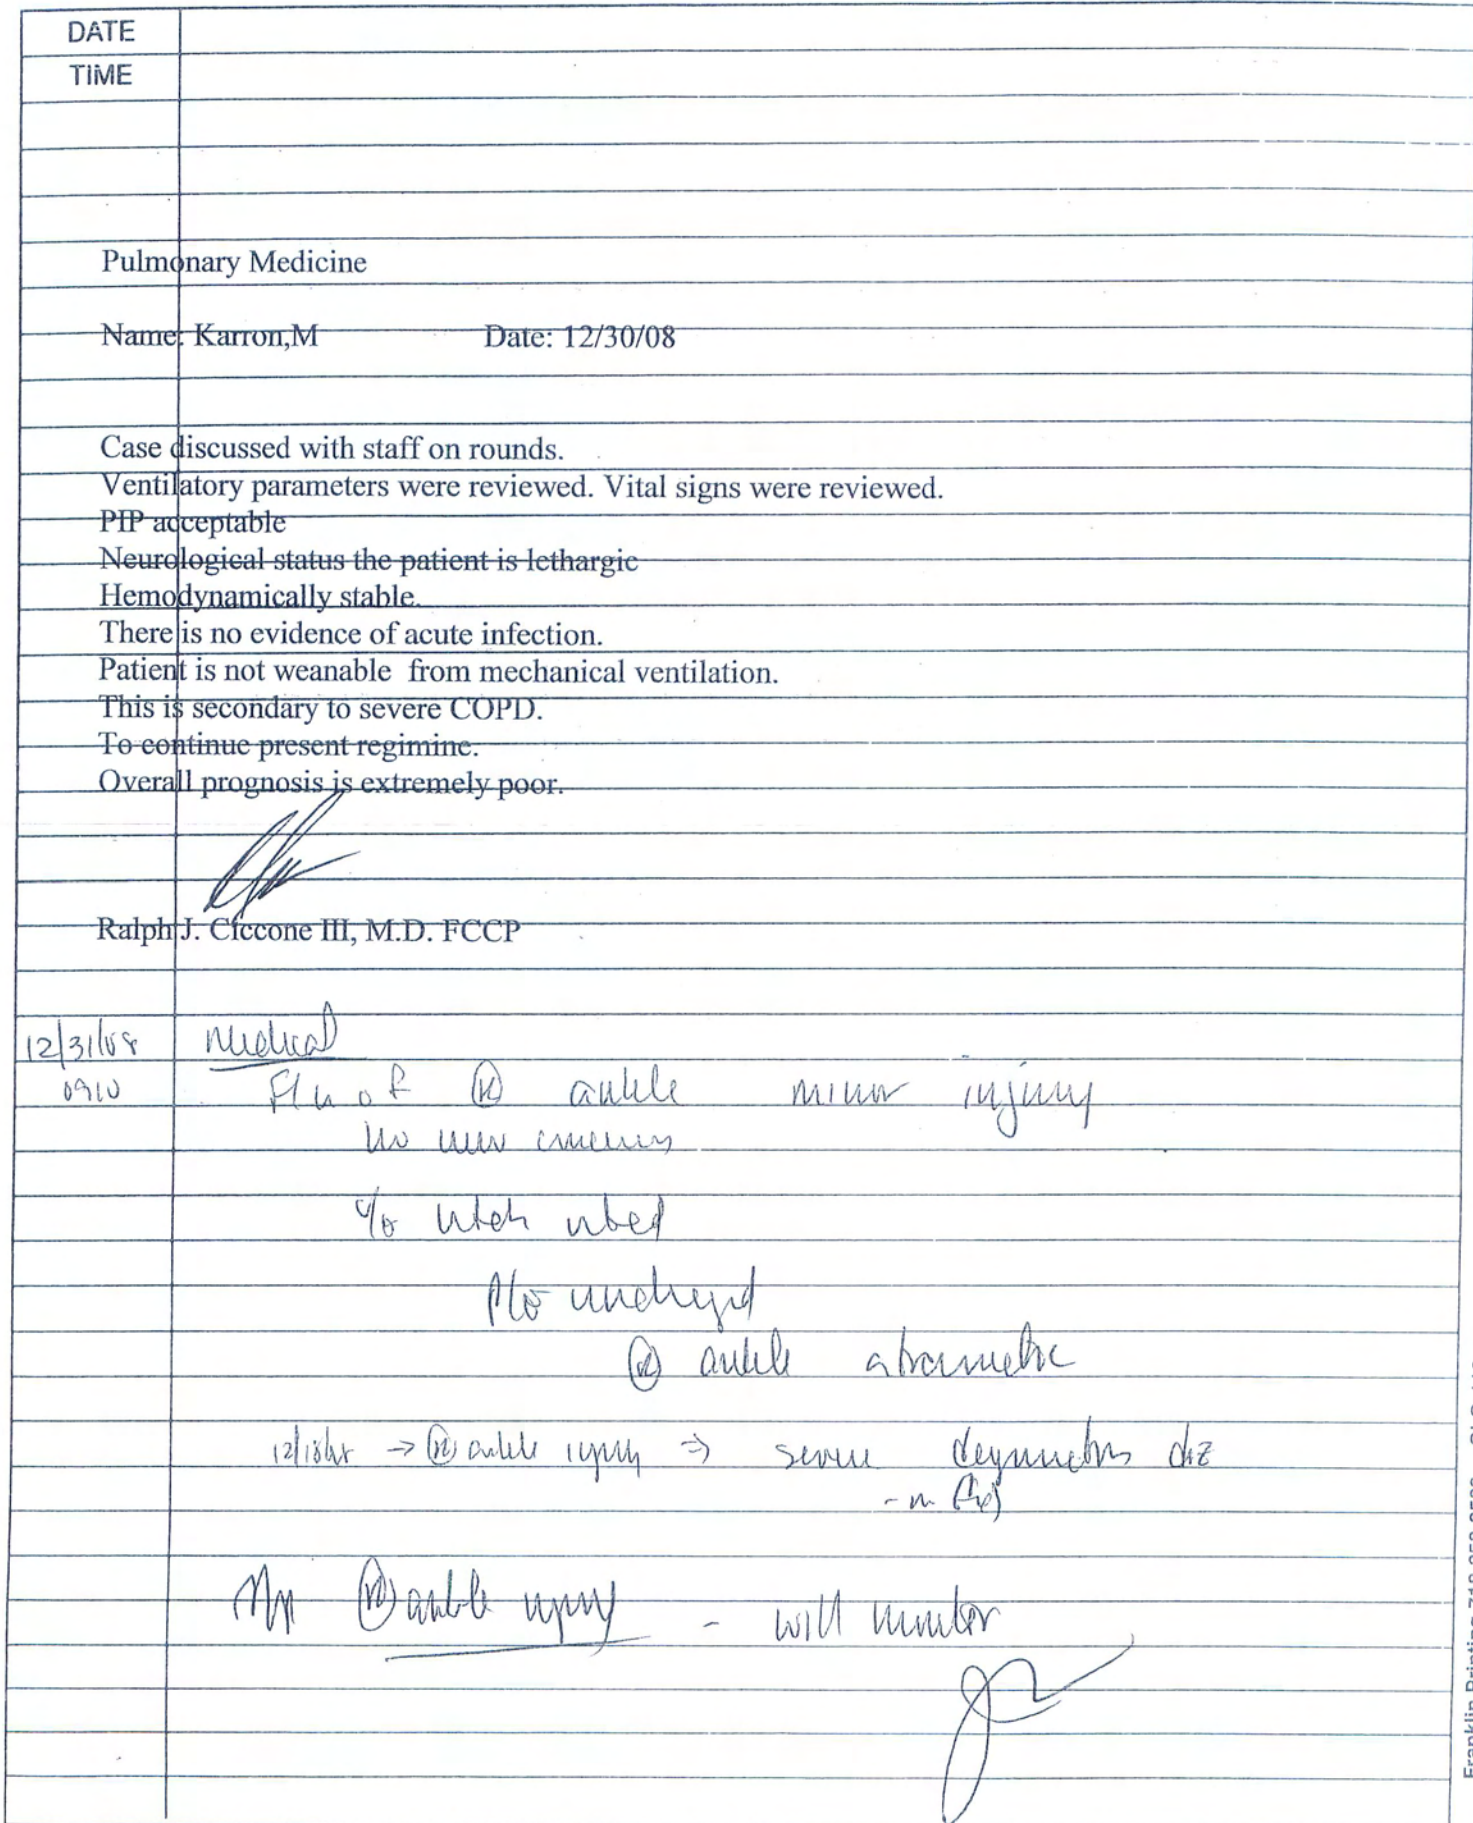 DATE
TIME
Pulmonary Medicine
Name: Karron,M Date: 12/30/08
Case discussed with staff on rounds.
Ventilatory parameters were reviewed. Vital signs were reviewed.
PIP acceptable
Neurological status the patient is lethargic
Hemodynamically stable.
There is no evidence of acute infection.
Patient is not weanable from mechanical ventilation.
This is secondary to severe COPD.
To continue present regimine.
Overall prognosis is extremely poor.
Ralph J. Ciccone III, M.D. FCCP
12/31/08 Medical
0910 F/u of Ⓡ ankle minor injury
no new concerns
Ⓡ ankle atraumatic
→ Ⓡ ankle injury ⇒ severe
Ⓡ ankle injury - will monitor
Franklin Printing 718